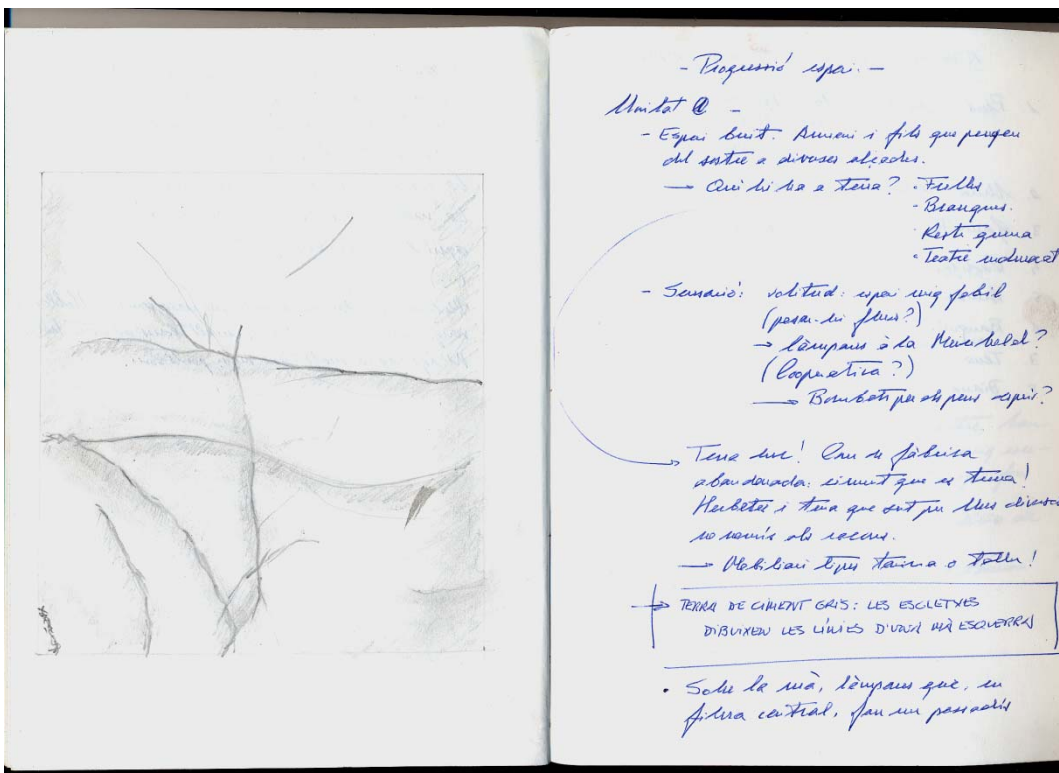 - Progressió espai. -
Unitat @ -
- Espai buit. Arneni i fils que pengen
del sostre a diverses alçades.
→ Què hi ha a terra? · Fulles
- Branques.
· Restes
· Teatre
- Sensació: solitud: espai mig fabril
(posar-hi flors?)
→ làmpares à la
(Cooperativa?)
→ per als peus
Terra
abandonada: ciment que es trenca!
Herbetes i terra que surt per llocs diversos
no només als racons.
→ Mobiliari tipus taverna o taller!
→ TERRA DE CIMENT GRIS: LES ESCLETXES
DIBUIXEN LES LÍNIES D'UNA MÀ ESQUERRA
· Sobre la mà, làmpares que, en
filera central, fan un passadís